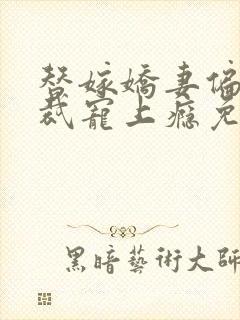 替嫁嬌妻偏
裁寵上癮免
黑暗藝術大師